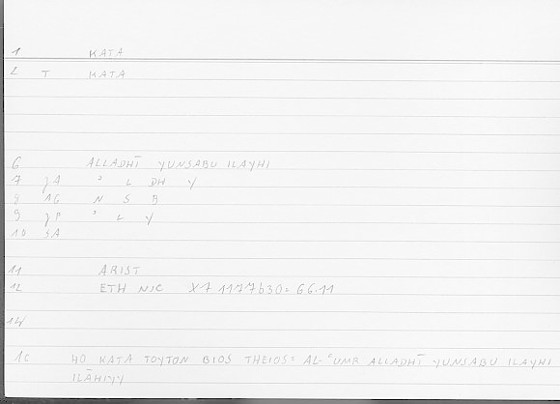 1 KATA
2 T KATA
6 ALLADHĪ YUNSABU ILAYHI
7 JA ʾ L DH Y
8 AG N S B
9 JP ʾ L Y
10 SA
11 ARIST
12 ETH NIC X7 1177b30= 66.11
14
15 HO KATA TOYTON BIOS THEIOS= AL-ʿUMR ALLADHĪ YUNSABU ILAYHI
ILĀHIYY